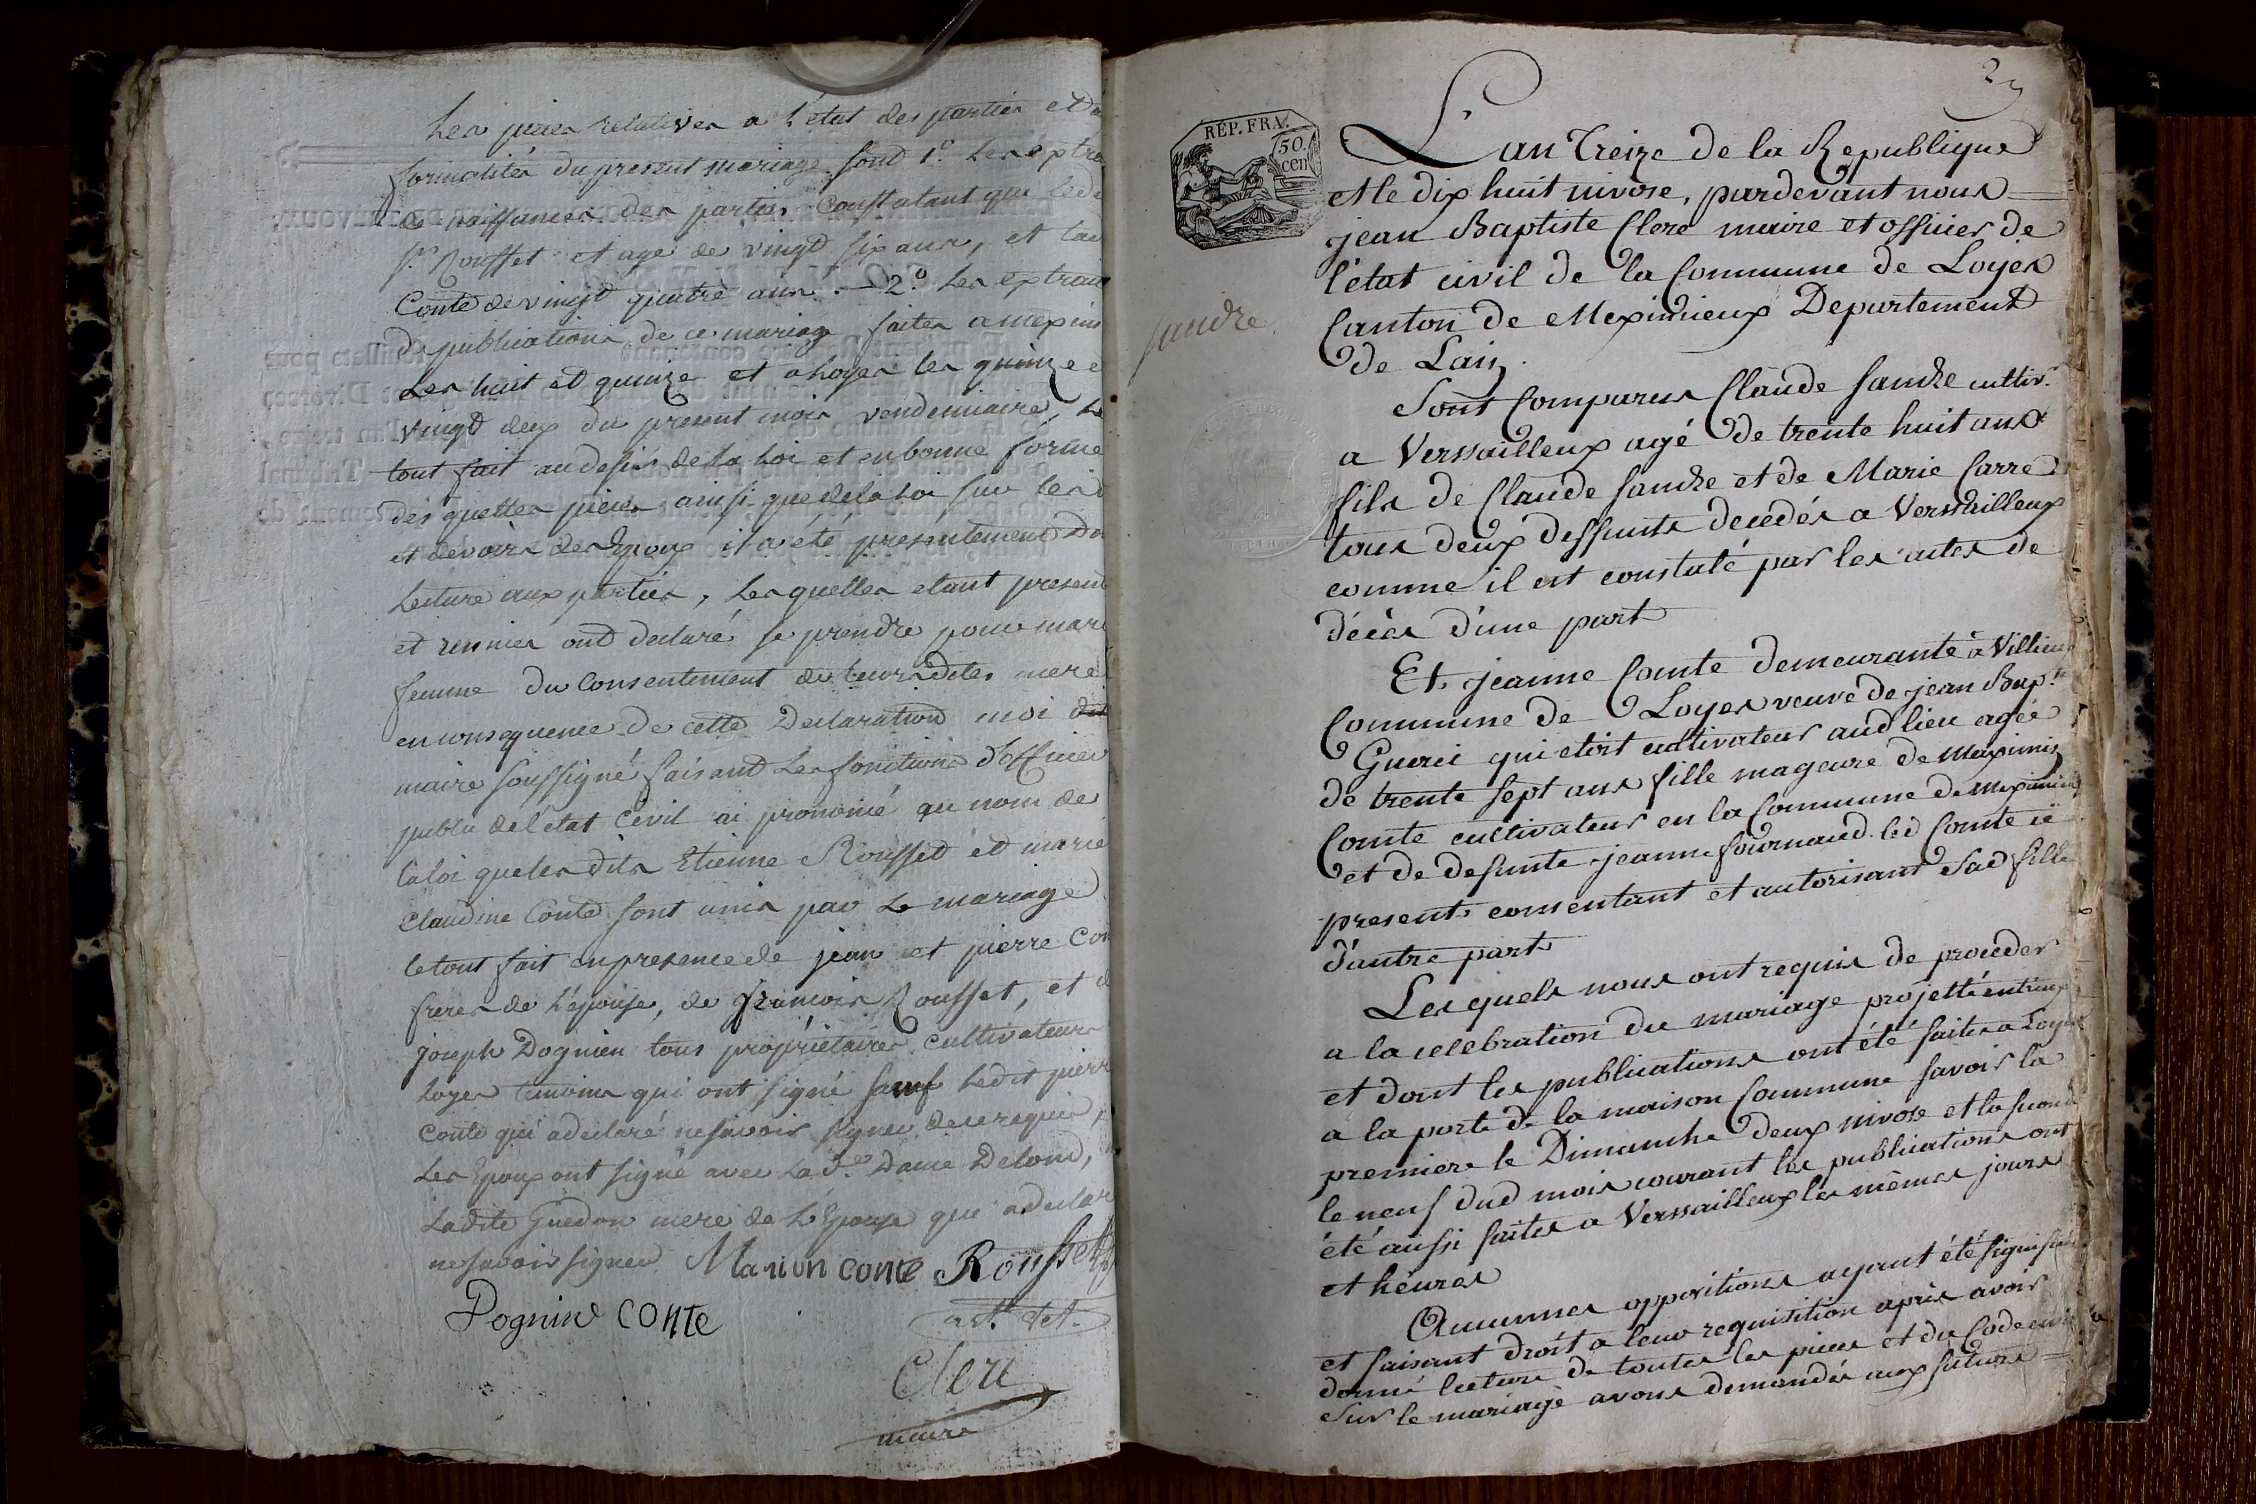 Les pieces relatives a l'état des parties et a
formalités du present mariage sont 1.º Les extra
de naissances des parties constatant que ledi
s.r Rousset et agé de vingt six ans, et la
Conte de vingt quatre ans. — 2.º Les extrai
de publications de ce mariage faites a mexim
Les huit et quinze et a Loyes les quinze e
vingt deux du present mois vendemiaire, Le
tout fait au desir de la Loi et en bonne forme
des quelles pieces ainsi que de la Loi sur les d
et devoirs des Epoux il a été presentement Do
Lecture aux parties, Lesquelles etant present
et reunies ont declaré se prendre pour mari
femme du Consentement de leursdites mere
en consequence de cette Declaration moi dit
maire soussigné faisant Les fonctions d'officier
public de l'état Civil ai prononcé au nom de
la loi que les dits Etienne Rousset et marie
Claudine Conte sont unis par Le mariage
le tout fait en presence de jean et pierre Con
freres de l'épouse, de francois Rousset, et d
joseph Dognien tous propriétaires cultivateurs
Loyes temoins qui ont signé sauf Ledit pierre
Conte qui a declaré ne savoir signer de ce requis
Les Epoux ont signé avec La d.e Dame
Ladite Guedon mere de L'Epouse qui a declar
ne savoir signer Marion conte Rousset
Dognin CONTE
Clerc
maire
REP. FRA.
50.
cen
L'an Treize de la Republique
et le dix huit nivose, pardevant nous
jean Baptiste Clerc maire et officier de
l'état civil de la Commune de Loyes
Canton de Meximieux Departement
de Lain
Sandre
Sont Comparus Claude Sandre cultiv.r
a Versailleux agé de trente huit ans
fils de Claude Sandre et de Marie Carre
tous deux deffunts decedés a Versailleux
comme il est constaté par les actes de
décès d'une part
Et jeanne Comte demeurante à Villieu
Commune de Loyes veuve de jean Bap.te
Guerci qui etoit cultivateur aud lieu agée
de trente sept ans fille mageure de Maximin
Comte cultivateur en la Commune de Meximieux
et de defunte jeanne fournaud. led Comte ii
present consentant et autorisant sad fille
d'autre part
Lesquels nous ont requis de proceder
a la celebration du mariage projetté entreux
et dont les publications ont été faites a Loyes
a la porte de la maison Commune savoir la
premiere le Dimanche deux nivose et la second
le neuf dud mois courant les publications ont
été aussi faites a Versailleux les mêmes jours
et heures
Aucunes oppositions ayant été signifiées
et faisant droit a leur requisition après avoir
donné lecture de toutes les pieces et du Code civil
sur le mariage avons demandés aux futurs